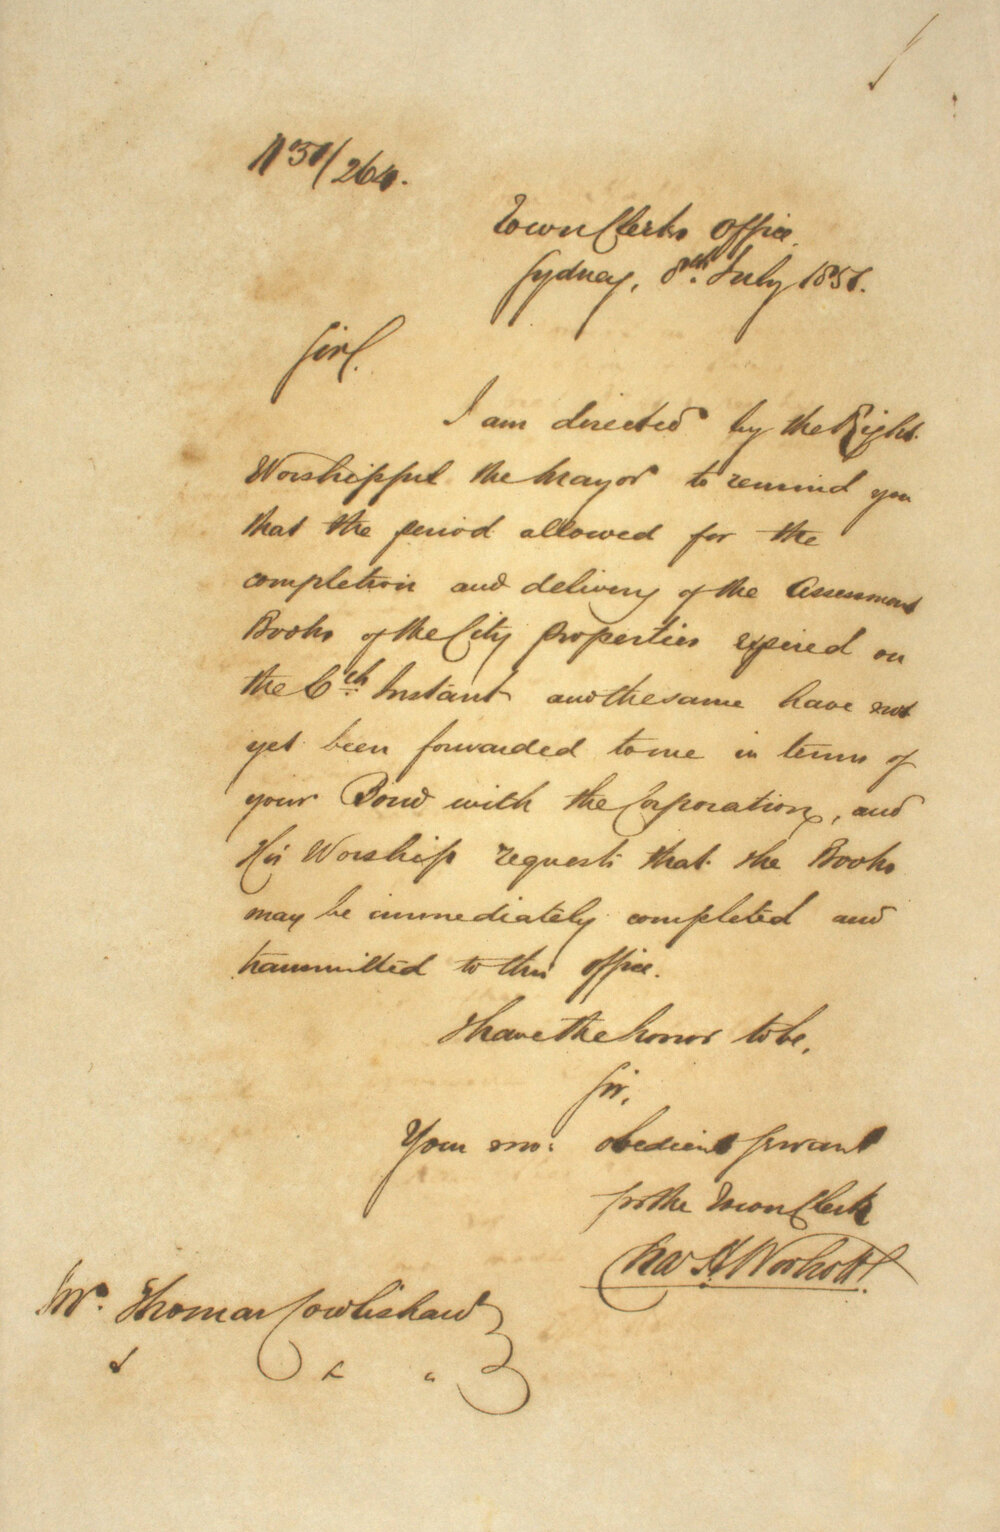 No 51/264.
Town Clerks Office.
Sydney, 8th. July 1851.
Sir,
I am directed by the Right
Worshipful the Mayor to remind you
that the period allowed for the
completion and delivery of the Assessment
Books of the City Properties expired on
the 6th. Instant and the same have not
yet been forwarded to me in terms of
your Bond with the Corporation, and
His Worship requests that the Books
may be immediately completed and
transmitted to this office.
I have the honor to be,
Sir,
Your mo: obedient servant
for the Town Clerk
Chas H Woolcott
Mr. Thomas Cowlishaw